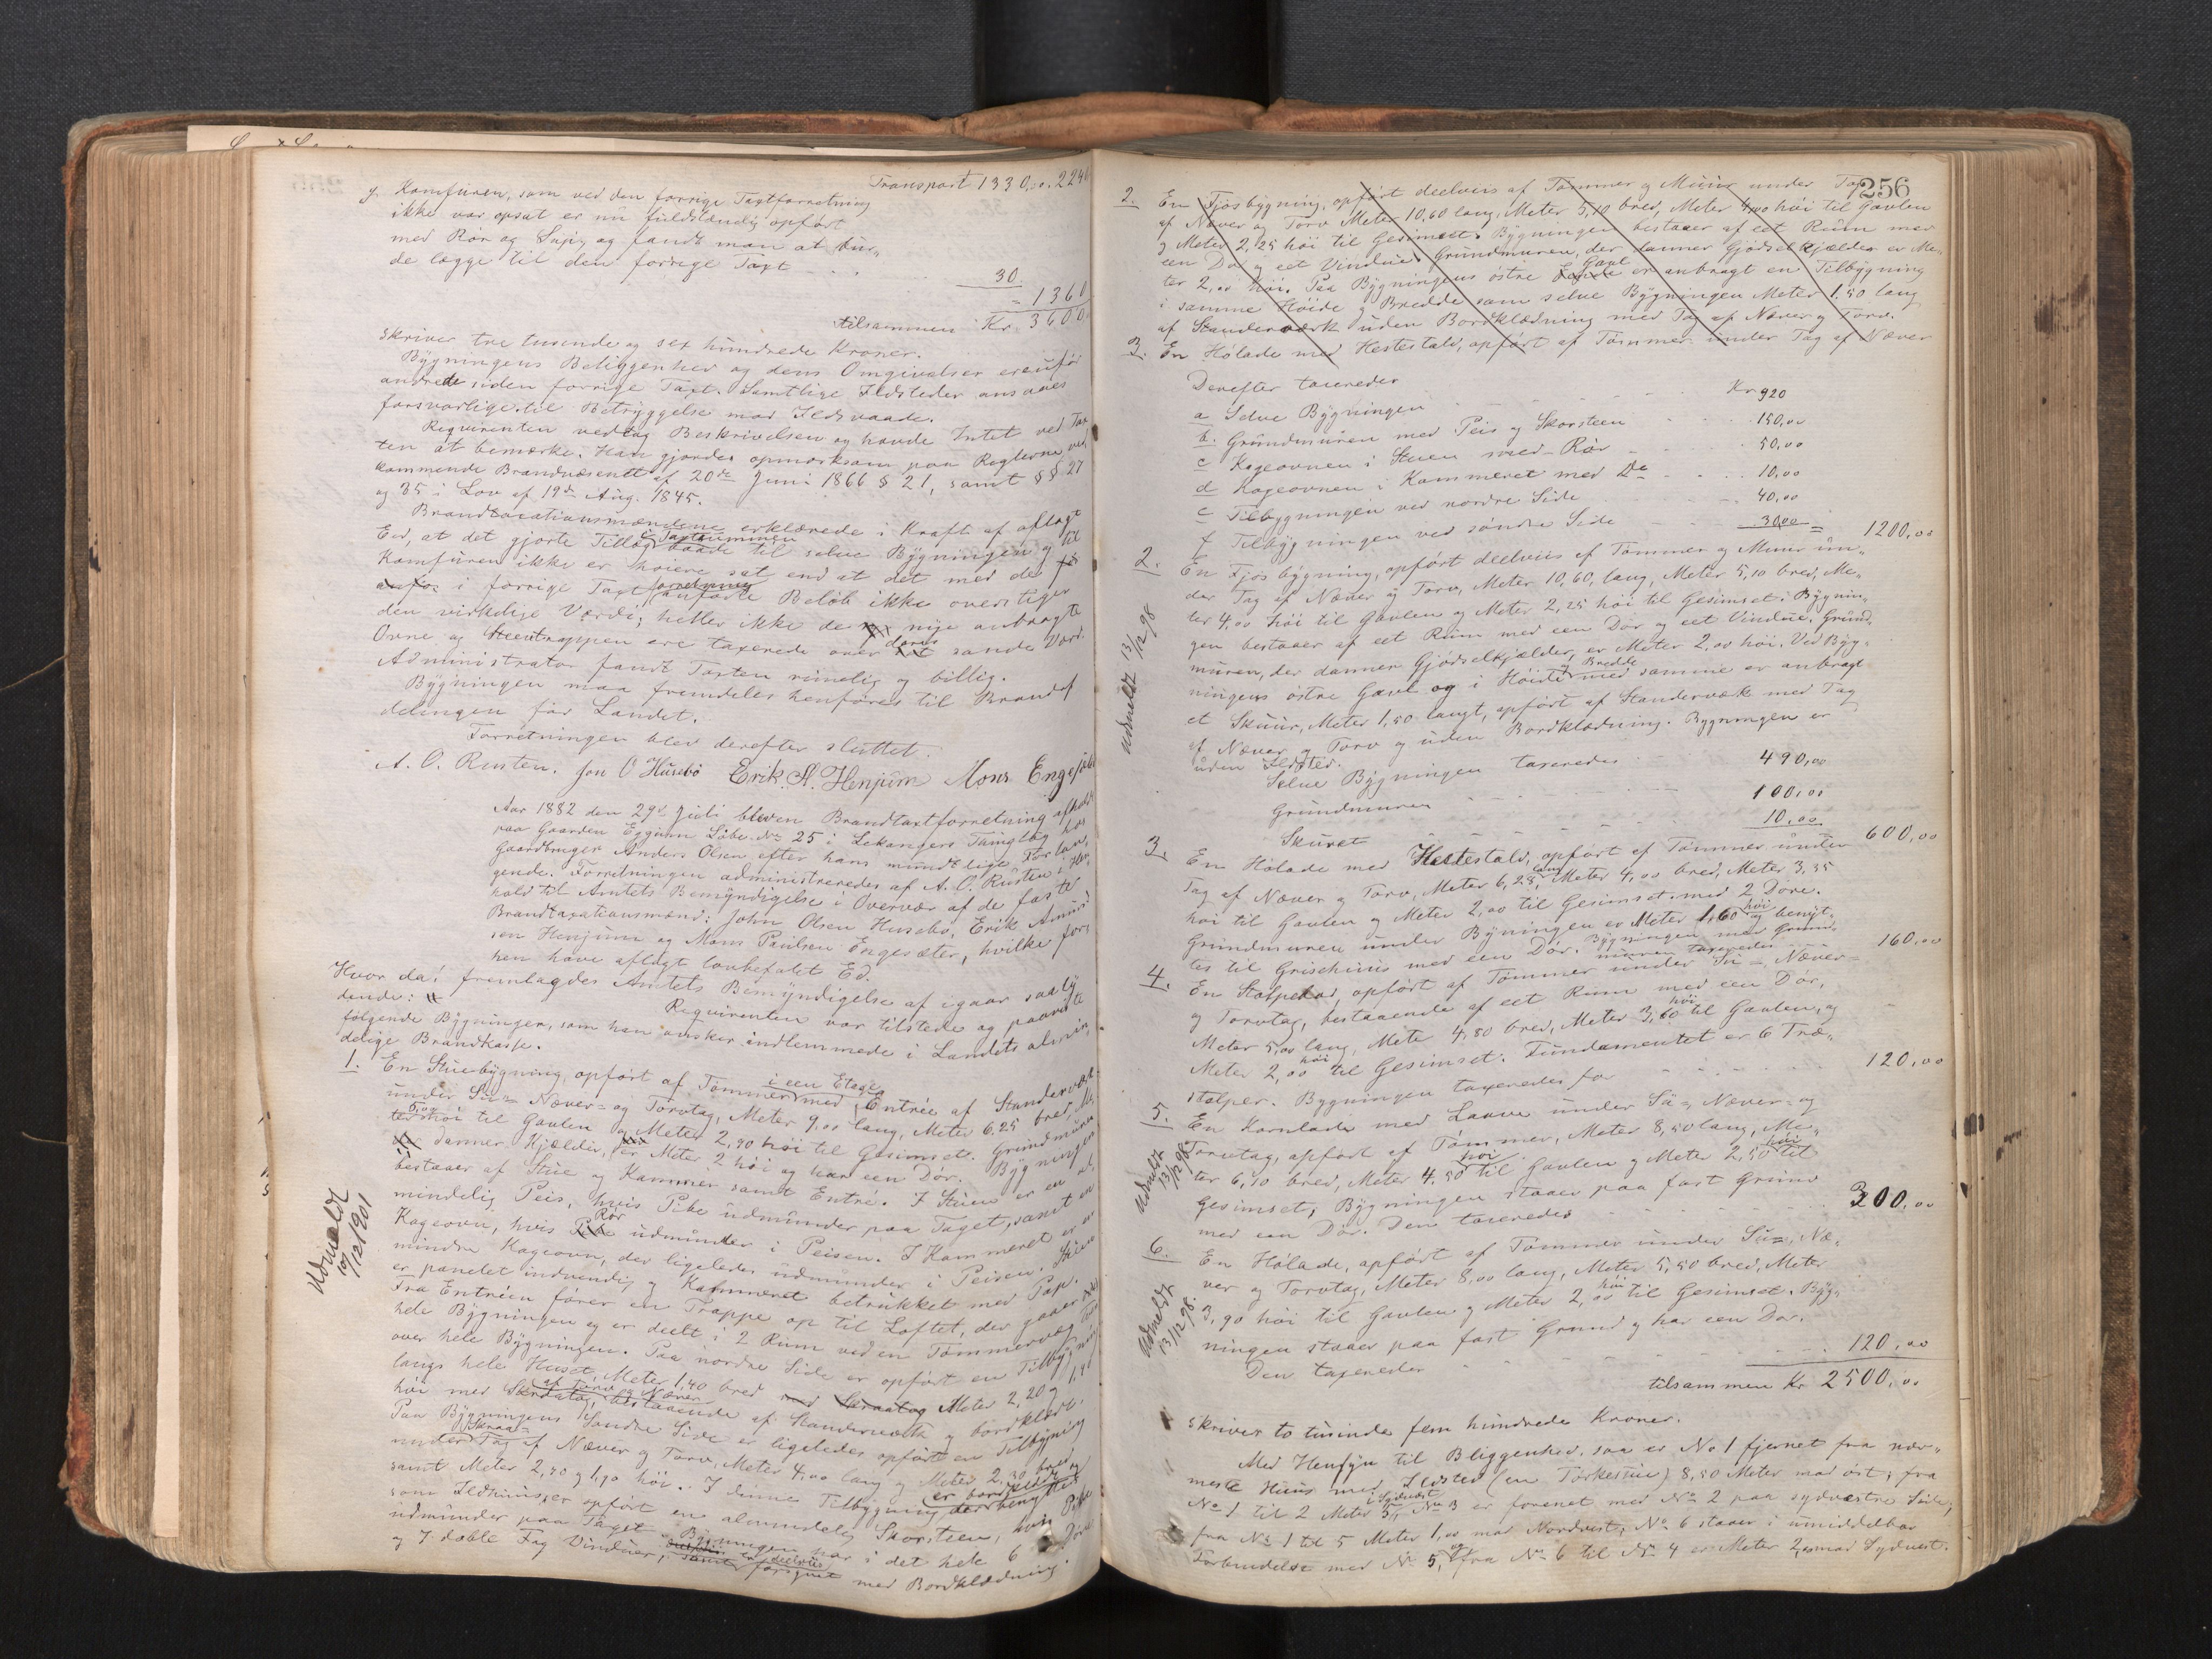 Transport 1330,00. 2240
g. Komfuren, som ved den forrige Taxtforretning
ikke var opsat er nu fuldstændig opført
med Rør og Supig og fandt man at bur-
de lægge til den forrige Taxt . . 30
= 1360
tilsammen Kr 3600
skriver tre tusende og sex hundrede Kroner.
Bygningens Beliggenhed og dens Omgivelser ere ufor
andrede siden forrige Taxt. Samtlige Ildsteder ansaaes
forsvarlige til Betryggelse mod Ildsvaade.
Requirenten vedtog Beskrivelsen og havde Intet ved Tax
ten at bemærke. Han gjordes opmærksom paa Reglerne ved
kommende Brandvæsenet af 20de Juni 1866 § 21, samt §§ 27
og 35 i Lov af 19de Aug. 1845.
Brandtaxationsmændene erklærede i Kraft af aflagt
Eed, at det gjorte Tillæg i Taxtsummen baade til selve Bygningen og til
Komfuren ikke er høiere sat end at det med det
i forrige Taxtforretning anførte Beløb ikke overstiger
den virkelige Værdi; heller ikke de nye anbragte
Ovne og Steentrappen ere taxerede over deres sande Værd.
Administrator fandt Taxten rimelig og billig.
Bygningen maa fremdeles henføres til Brandaf
delingen for Landet.
Forretningen blev derefter sluttet.
A. O. Rusten. Jon O Husebö Erik A. Henjum Mons Engesæter
Aar 1882 den 29de Juli blev en Brandtaxtforretning afholdt
paa Gaarden Eggum Løbe No 25 i Lekangers Thinglag hos
Gaardbruger Anders Olsen efter hans mundtlige Forlan-
gende. Forretningen administreredes af A. O. Rusten i Hen-
hold til Amtets Bemyndigelse i Overvær af de faste
Brandtaxationsmænd: John Olsen Husebø, Erik Amund-
sen Henjum og Mons Paulsen Engesæter, hvilke for-
hen have aflagt lovbefalet Ed.
Hvor da: fremlagdes Amtets Bemyndigelse af igaar saaly
dende:
Requirenten var tilstede og paaviste
følgende Bygninger, som han ønsker indlemmede i Landets almin
delige Brandkasse.
1. En Stuebygning, opført af Tømmer i een Etage med Entrée af Standerværk
under Su- Næver- og Torvtag, Meter 9,00 lang, Meter 6.25 bred, Me-
ter 5,00 høi til Gavlen og Meter 2,90 høi til Gesimset. Grundmuren
danner Kjælder, er Meter 2 høi og har een Dør. Bygningen
bestaaer af Stue og Kammer samt Entré. I Stuen er en al-
mindelig Peis, hvis Pibe udmunder paa Taget, samt en
Kageovn, hvis Rør udmunder i Peisen. I Kammeret er en
mindre Kageovn, der ligeledes udmunder i Peisen. Stuen
er panelet indvendig og Kammeret betrukket med Pap.
Fra Entréen fører en Trappe op til Loftet, der gaaer over
hele Bygningen og er deelt i 2 Rum ved en Tømmervæg
over hele Bygningen. Paa nordre Side er opført en Tilbygning
langs hele Huset, Meter 1,40 bred Meter 2,20 og 1,90
høi med Skraatag af Torv og Næver, bestaaende af Standerværk og bordklædt.
Paa Bygningens Søndre Side er ligeledes opført en Tilbygning
under Skraa- Tag af Næver og Torv, Meter 4,00 lang og Meter 2,30 bred
samt Meter 2,70 og 1,90 høi. I denne Tilbygning der benyttes
som Ildhuus, er opført en almindelig Skorsteen, hvis Pibe
udmunder paa Taget. Bygningen har i det hele 6 Døre
og 7 doble Fag Vinduer, er deelviis forsynet med Bordklædning.
Udmeldt
10/12 1901
256
2. En Fjøsbygning, opført deelviis af Tømmer og Muur under Tag
af Næver og Torv Meter 10,60 lang, Meter 5,10 bred, Meter 4,00 høi til Gavlen
og Meter 2,25 høi til Gesimset. Bygningen bestaaer af eet Rum med
een Dør og eet Vindue. Grundmuren, der danner Gjødselkjælder er Me-
ter 2,00 høi. Paa Bygningens østre Gavl er anbragt en Tilbygning
i samme Høide og Bredde som selve Bygningen Meter 1,50 lang
af Standerværk uden Bordklædning med Tag af Næver og Torv.
3. En Hølade med Hestestald, opført af Tømmer under Tag af Næver
Derefter taxeredes
a Selve Bygningen . . . Kr 920
b. Grundmuren med Peis og Skorsteen . . 150,00
c Kageovnen i Stuen med Rør . . 50,00
d Kageovnen i Kammeret med Do . . 10,00
e Tilbygningen ved nordre Side . . 40,00
f Tilbygningen ved søndre Side . . 30,00 = 1200,00
2. En Fjøsbygning, opført deelviis af Tømmer og Muur un-
der Tag af Næver og Torv, Meter 10,60, lang, Meter 5,10 bred, Me-
ter 4,00 høi til Gavlen og Meter 2,25 høi til Gesimset. Bygnin-
gen bestaaer af eet Rum med een Dør og eet Vindue. Grund-
muren, der danner Gjødselkjælder, er Meter 2,00 høi. Ved Byg-
ningens østre Gavl og i Høide og Bredde med samme er anbragt
et Skuur, Meter 1,50 langt, opført af Standerværk med Tag
af Næver og Torv og uden Bordklædning. Bygningen er
uden Ildsted.
Selve Bygningen taxeredes . . 490,00
Grundmuren . . 100,00
Skuret . . 10,00 600,00
Udmeldt 13/12 98
3. En Hølade med Hestestald, opført af Tømmer under
Tag af Næver og Torv, Meter 6,25 lang, Meter 4,00 bred, Meter 3,35
høi til Gavlen og Meter 2,00 til Gesimset med 2 Døre.
Grundmuren under Bygningen er Meter 1,60 høi og benyt-
tes til Grisehuus med een Dør. Bygningen med Grund-
muren taxeredes 160,00
4. En Stolpebod, opført af Tømmer under Su-, Næver-
og Torvtag, bestaaende af eet Rum med een Dør,
Meter 5,00 lang, Mete 4,80 bred, Meter 3,60 høi til Gavlen, og
Meter 2,00 høi til Gesimset. Fundamentet er 6 Træ-
stolper. Bygningen taxeredes for . . 120,00
5. En Kornlade med Laave under Su-, Næver- og
Torvtag, opført af Tømmer, Meter 8,50 lang, Me-
ter 6,10 bred, Meter 4.50 høi til Gavlen og Meter 2,50 høi til
Gesimset, Bygningen staaer paa fast Grund
med een Dør. Den taxeredes . . 300,00
Udmeldt
13/12 98.
6. En Hølade, opført af Tømmer under Su-, Næ-
ver og Torvtag, Meter 8,00 lang, Meter 5,50 bred, Meter
3,90 høi til Gavlen og Meter 2,00 høi til Gesimset. Byg-
ningen staaer paa fast Grund og har een Dør.
Den taxeredes . . 120,00
Udmeldt
13/12 98.
tilsammen Kr 2500,00
skriver to tusinde fem hundrede Kroner.
Med Hensyn til Bliggenhed, saa er No 1 fjernet fra nær-
meste Huus med Ildsted (en Tørkestue) 8,50 Meter mod øst; fra
No 1 til 2 Meter 5, i Sydvest No 3 er forenet med No 2 paa sydvestre Side;
fra No 1 til 5 Meter 1,00 mod Nordvest; No 6 staaer i umiddelbar
Forbindelse med No 5, og fra No 6 til No 4 er Meter 2, mod Sydvest.